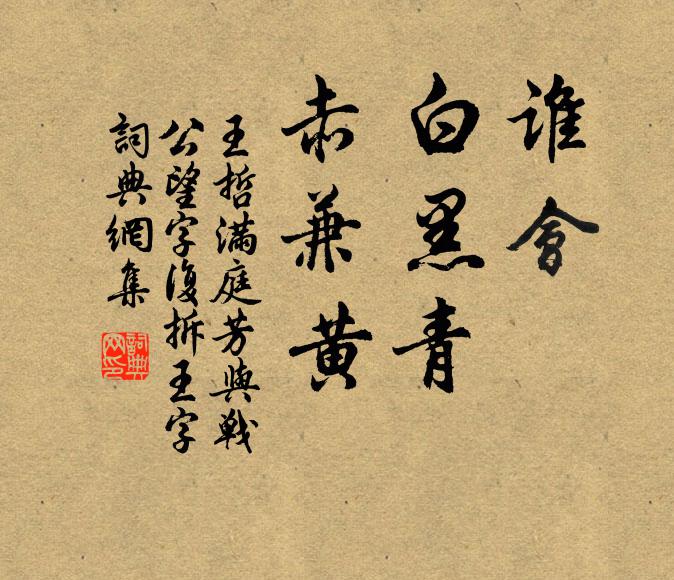 誰會
白黑青
赤兼黃
王哲滿庭芳與戰
公望字復拆王字
詞典網集
詞典
网印